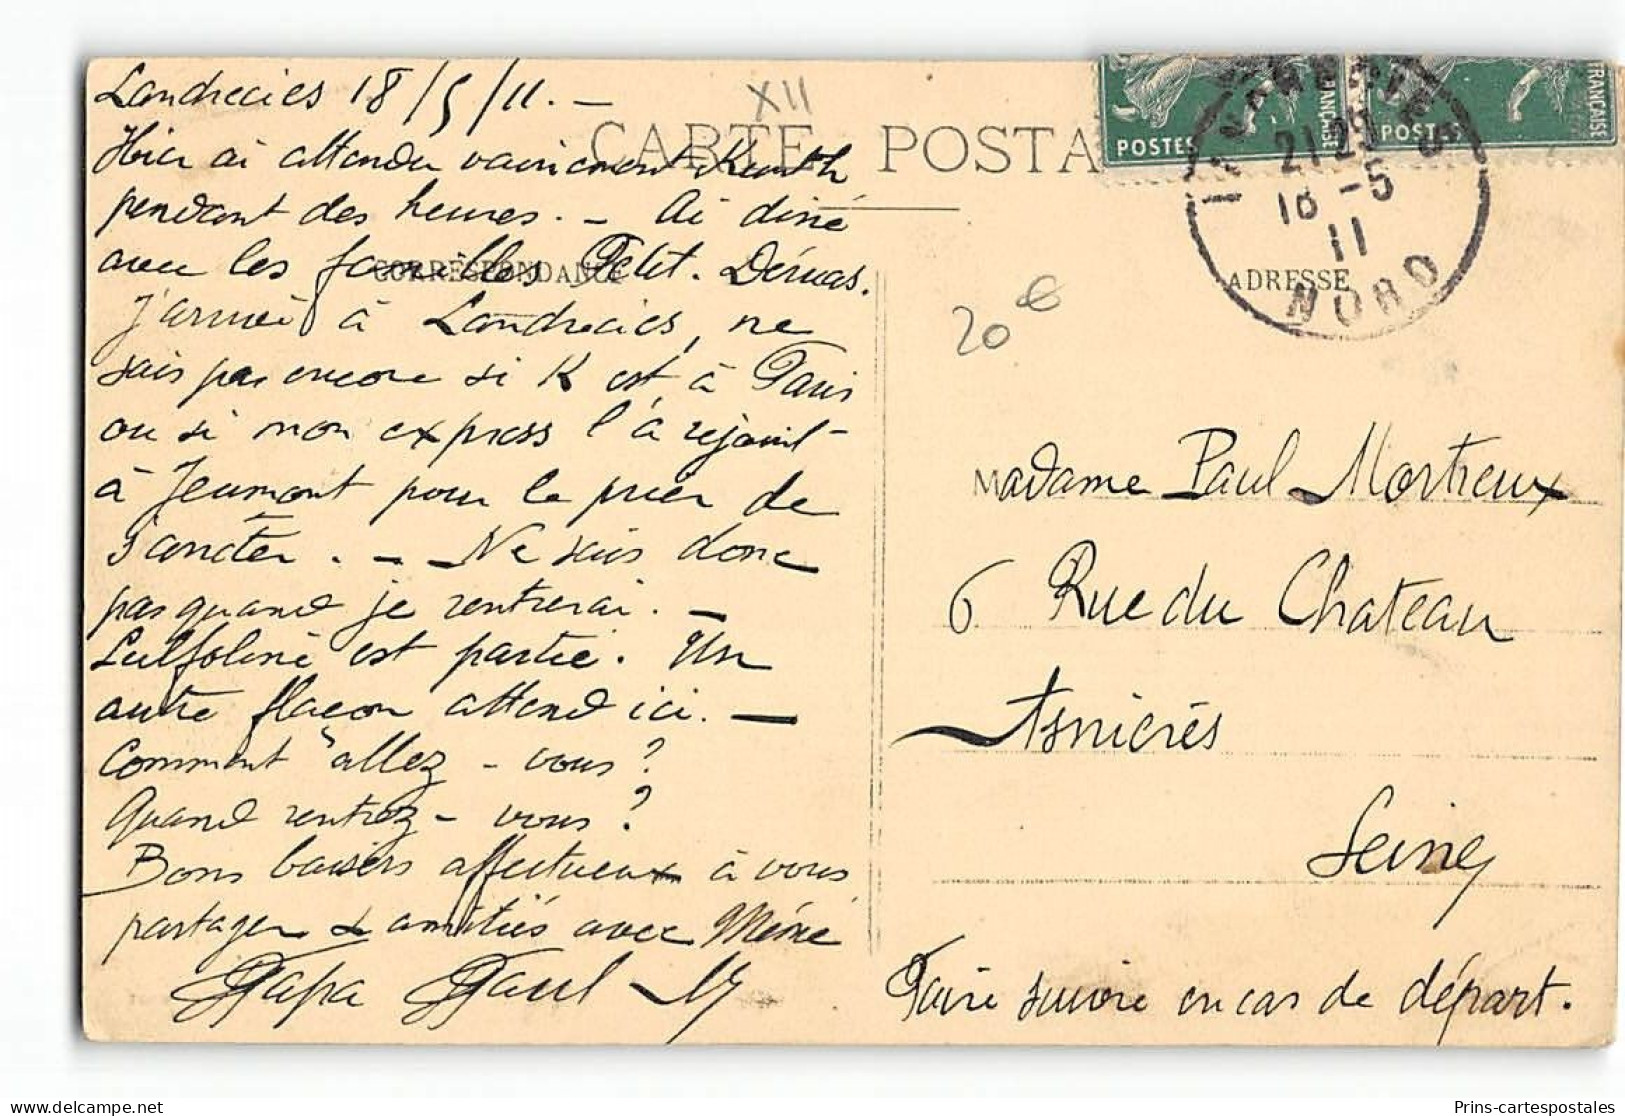 Landrecies 18/5/11. –
Hier ai attendu vainement Kenth
pendant des heures. – Ai diné
avec les familles Petit. Dérvas.
J'arrive à Landrecies, ne
sais pas encore si K est à Paris
ou si mon express l'a rejoint
à Jeumont pour le prier de
s'arrêter. – Ne sais donc
pas quand je rentrerai. –
est partie. Un
autre flacon attend ici. –
Comment allez-vous?
Quand rentrez-vous?
Bons baisers affectueux à vous
partager & amitiés avec Méné
Papa Paul M
XII
CARTE POSTA
CORRESPONDANCE
ADRESSE
POSTES
FRANÇAISE
POSTES
FRANÇAISE
21 25
18 - 5
11
NORD
20 €
Madame Paul Mortreux
6 Rue du Chateau
Asnières
Seine
Faire suivre en cas de départ.
Prins-cartespostales